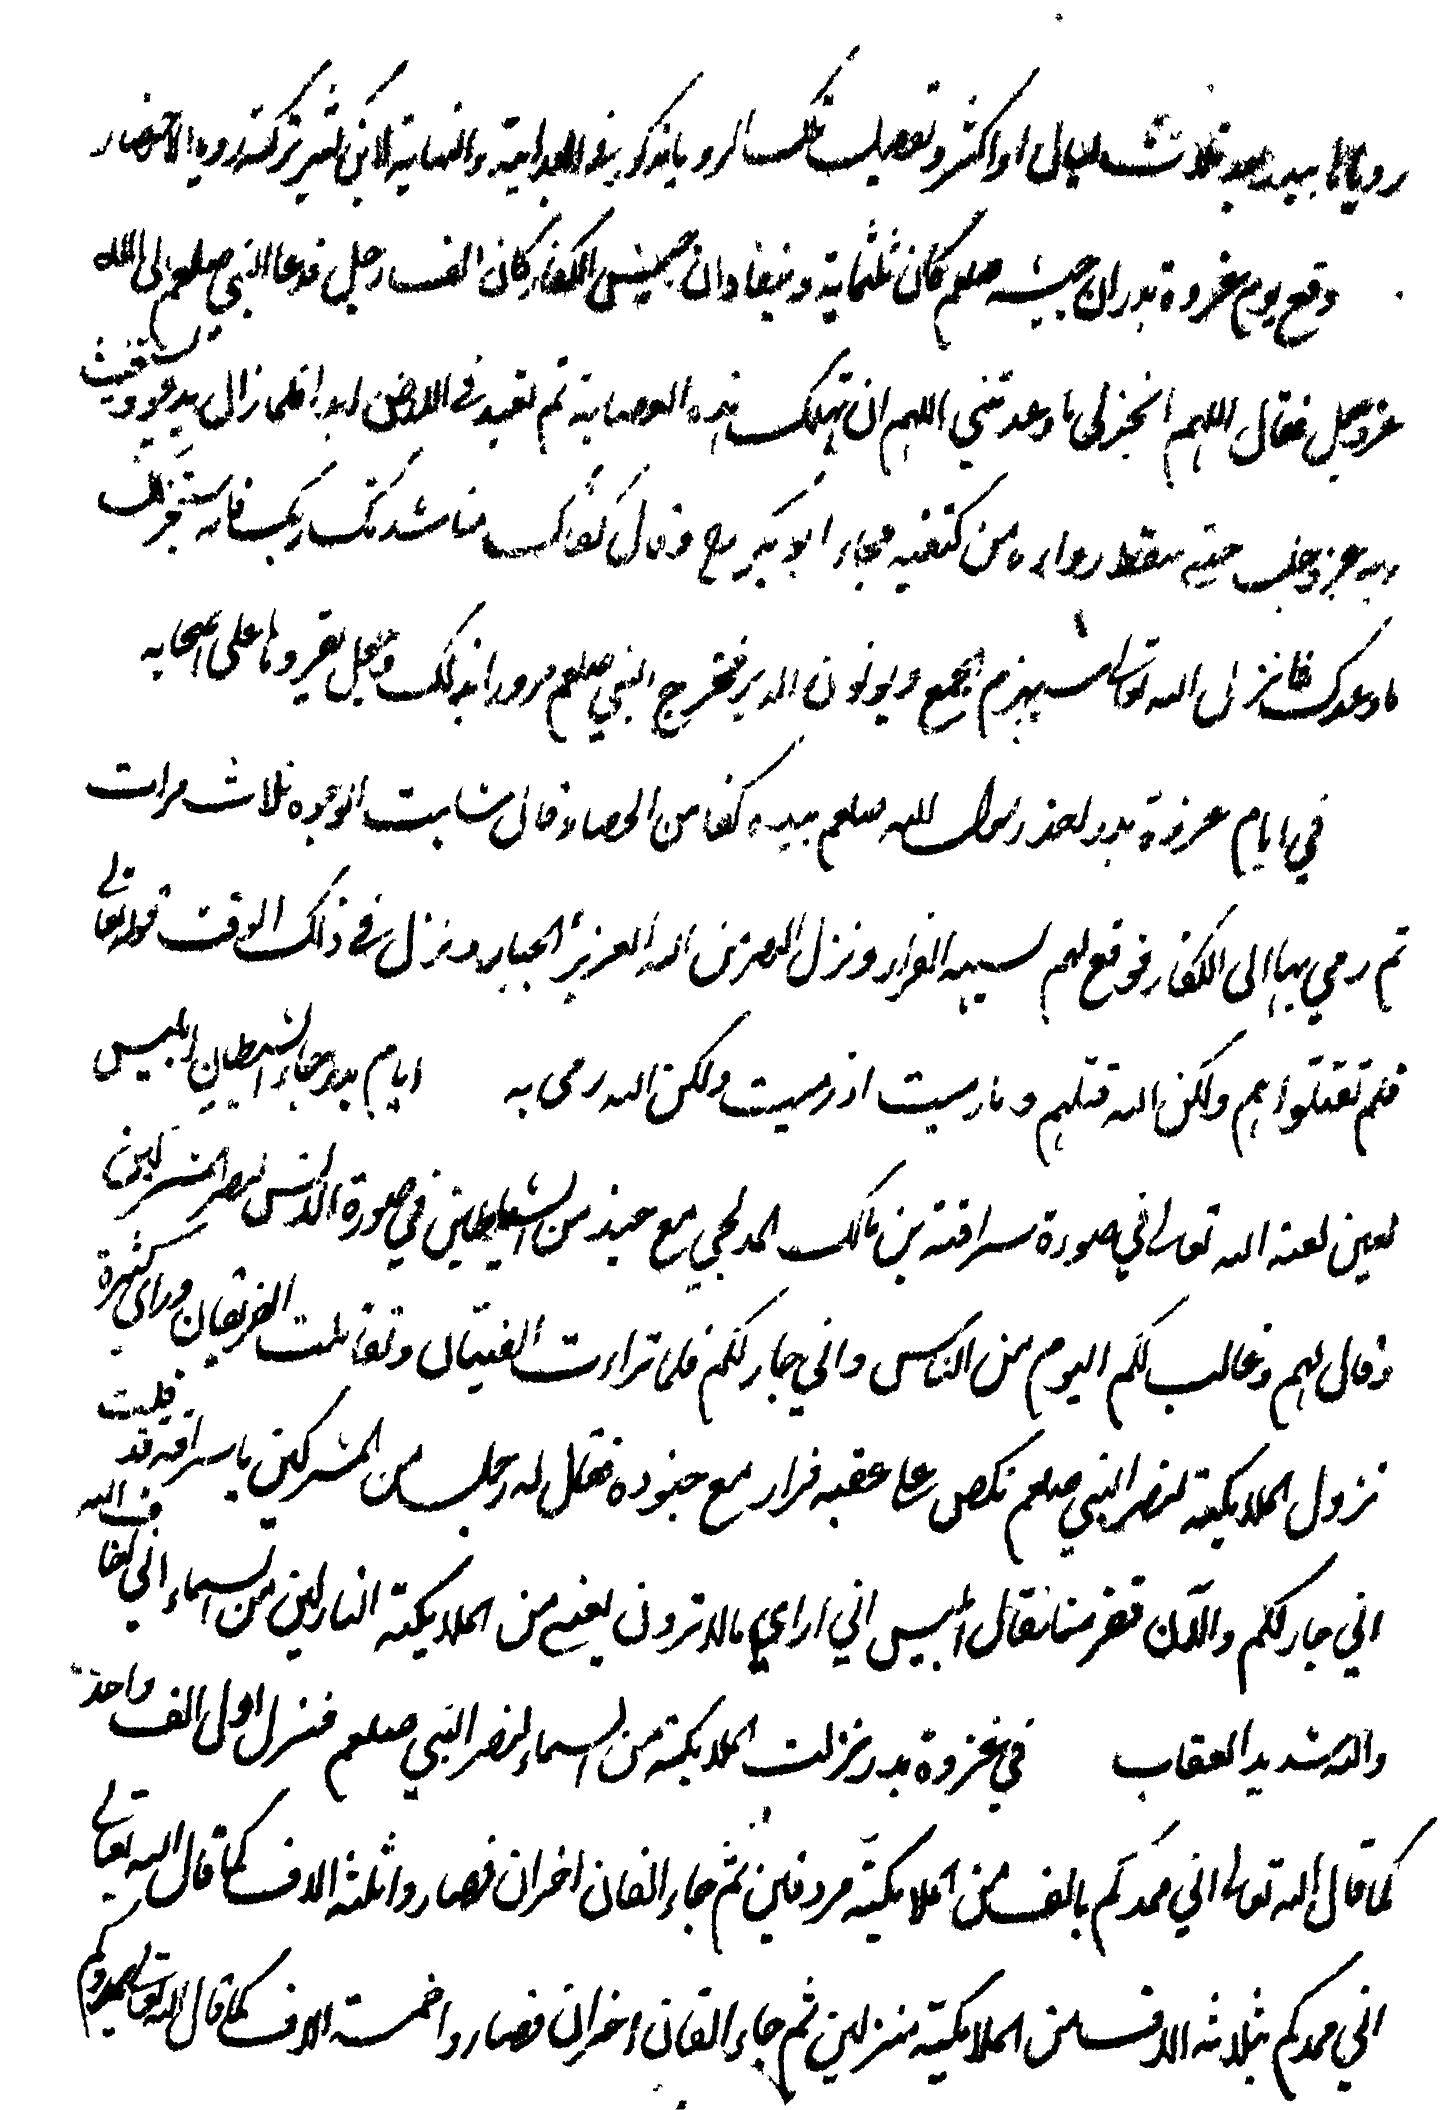 روياها ببدر بعد ثلاث ليال او اكثر وتفصيل تلك الرويا مذكور في البداية والنهاية لابن كثير تركته روم الاختصار
وقع يوم غزوة بدر ان جيشه صلعم كان ثلثماية ونيفا وان جيش الكفار كان الف رجل فدعا النبي صلعم الى الله
عز وجل فقال اللهم انجز لي ما وعدتني اللهم ان تهلك هذه العصابة لم تعبد في الارض ابدا فلما زال يدعو ويستغيث
ربه عز وجل حتى سقط رداءه من كتفيه فجاء ابو بكر رع وقال كفاك مناشدتك ربك فانه سينجز لك
ما وعدك فانزل الله تعالى سيهزم الجمع ويولون الدبر فخرج النبي صلعم مسرورا بذلك وجعل يقروها على اصحابه
في ايام غزوة بدر اخذ رسول الله صلعم بيده كفا من الحصا وقال شاهت الوجوه ثلاث مرات
ثم رمي بها الى الكفار فوقع لهم بسببه الفرار ونزل النصر من الله العزيز الجبار ونزل في ذلك الوقت قوله تعالى
فلم تقتلوهم ولكن الله قتلهم وما رميت اذ رميت ولكن الله رمى به ايام بدر جاء الشيطان ابليس
لعين لعنه الله تعالى في صورة سراقته بن مالك المدلجي مع جند من الشياطين في صورة الانس لنصر المشركين
وقال لهم لا غالب لكم اليوم من الناس واني جار لكم فلما تراءت الفيتان وتقابلت الفريقان وراي كثرة
نزول الملايكة لنصر النبي صلعم نكص على عقبه فرار مع جنوده فقال له رجل من المشركين يا سراقه قد قلت
اني جار لكم والآن تفر منا فقال ابليس اني اراي مالا ترون يعني من الملايكة النازلين من السماء اني اخاف الله
والله شديد العقاب في غزوة بدر نزلت الملايكة من السماء لنصر النبي صلعم فنزل اول الف واحد
كما قال الله تعالى اني ممدكم بالف من الملايكة مردفين ثم جاء الفان اخران فصاروا ثلثة الاف كما قال الله تعالى
اني ممدكم بثلاثة الاف من الملايكة منزلين ثم جاء الفان اخران فصاروا خمسة الاف كما قال الله تعالى يمددكم